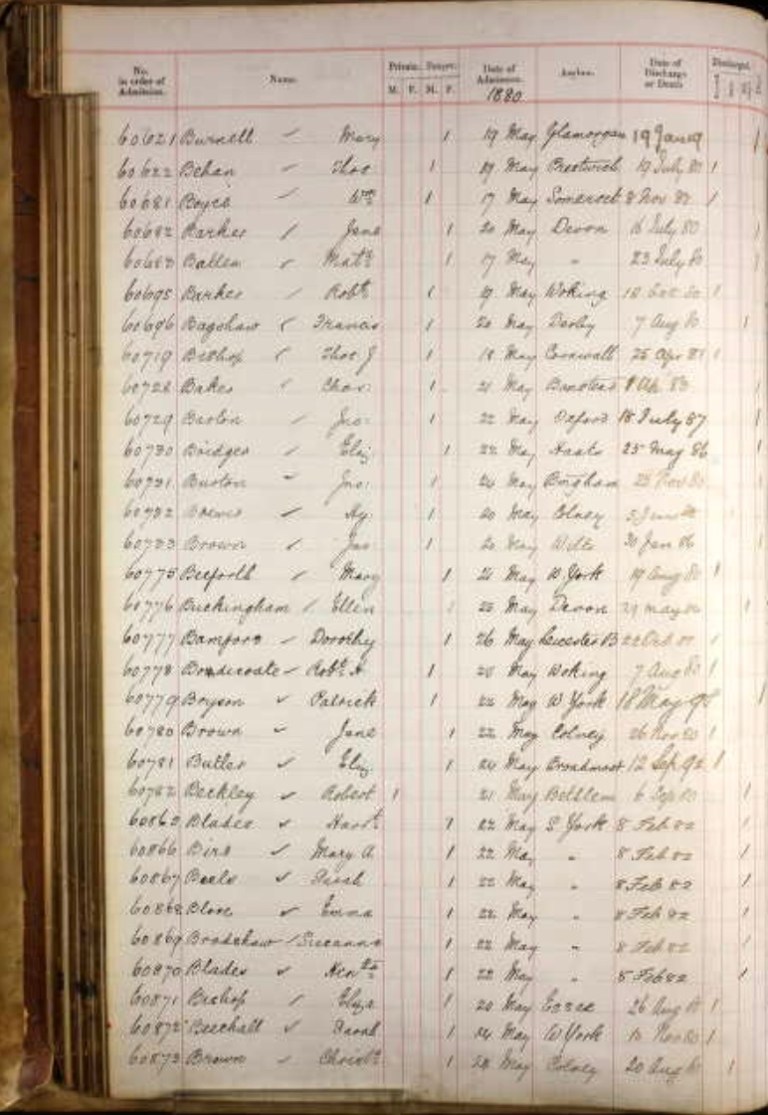 No. in order of Admission. Name. Private. Pauper. Date of Admission. Asylum. Date of Discharge or Death Discharged.
M. F. M. F. 1880
60621 Burnell Mary 1 19 May Glamorgan 1
60622 Behan Thos 1 19 May Prestwich 19 July 80 1
60681 Boyce Wm 1 17 May Somerset 8 Nov 1
60682 Barker Jane 1 20 May Devon 16 July 80 1
Math 1 17 May " 23 July 80 1
60695 Barker Robt 1 19 May Woking 1
60696 Bagshaw Francis 1 20 May Derby 7 Aug 80 1
60719 Bishop Thos J 1 18 May Cornwall 25 Apr 81 1
60728 Baker Chas: 1 21 May Banstead 83 1
60729 Barton Jno: 1 22 May Oxford 18 July 87 1
60730 Bridges Eliz 1 22 May Hants 25 May 86 1
60731 Burton Jno: 1 24 May
60732 Hy 1 20 May Colney
60733 Brown Jas 1 20 May Wilts 30 Jan 86 1
60775 Beeforth Mary 1 21 May W York 19 Aug 80 1
60776 Buckingham Ellen 1 25 May Devon 1
60777 Bamford Dorothy 1 26 May Leicester B 22 Oct 1
60778 Robt H 1 20 May Woking 7 Aug 80 1
60779 Boyson Patrick 1 22 May W York 18 May 1
60780 Brown Jane 1 22 May Colney 26 Nov 80 1
60781 Butler Eliz 1 24 May Broadmoor 12 Sep 92 1
60782 Beckley Robert 1 21 May Bethlem 6 Sep 80 1
Blades Harrt 1 22 May S York 8 Feb 82 1
60866 Bird Mary A 1 22 May " 8 Feb 82 1
60867 Beels 1 22 May " 8 Feb 82 1
60868 Emma 1 22 May " 8 Feb 82 1
60869 Bradshaw Suzanna 1 22 May " 8 Feb 82 1
60870 Blades 1 22 May " 8 Feb 82 1
60871 Bishop Eliza 1 20 May Essex 26 Aug 1
60872 Beechall Sarah 1 24 May W York Nov 80 1
60873 Brown Christn 1 28 May Colney 20 Aug 1